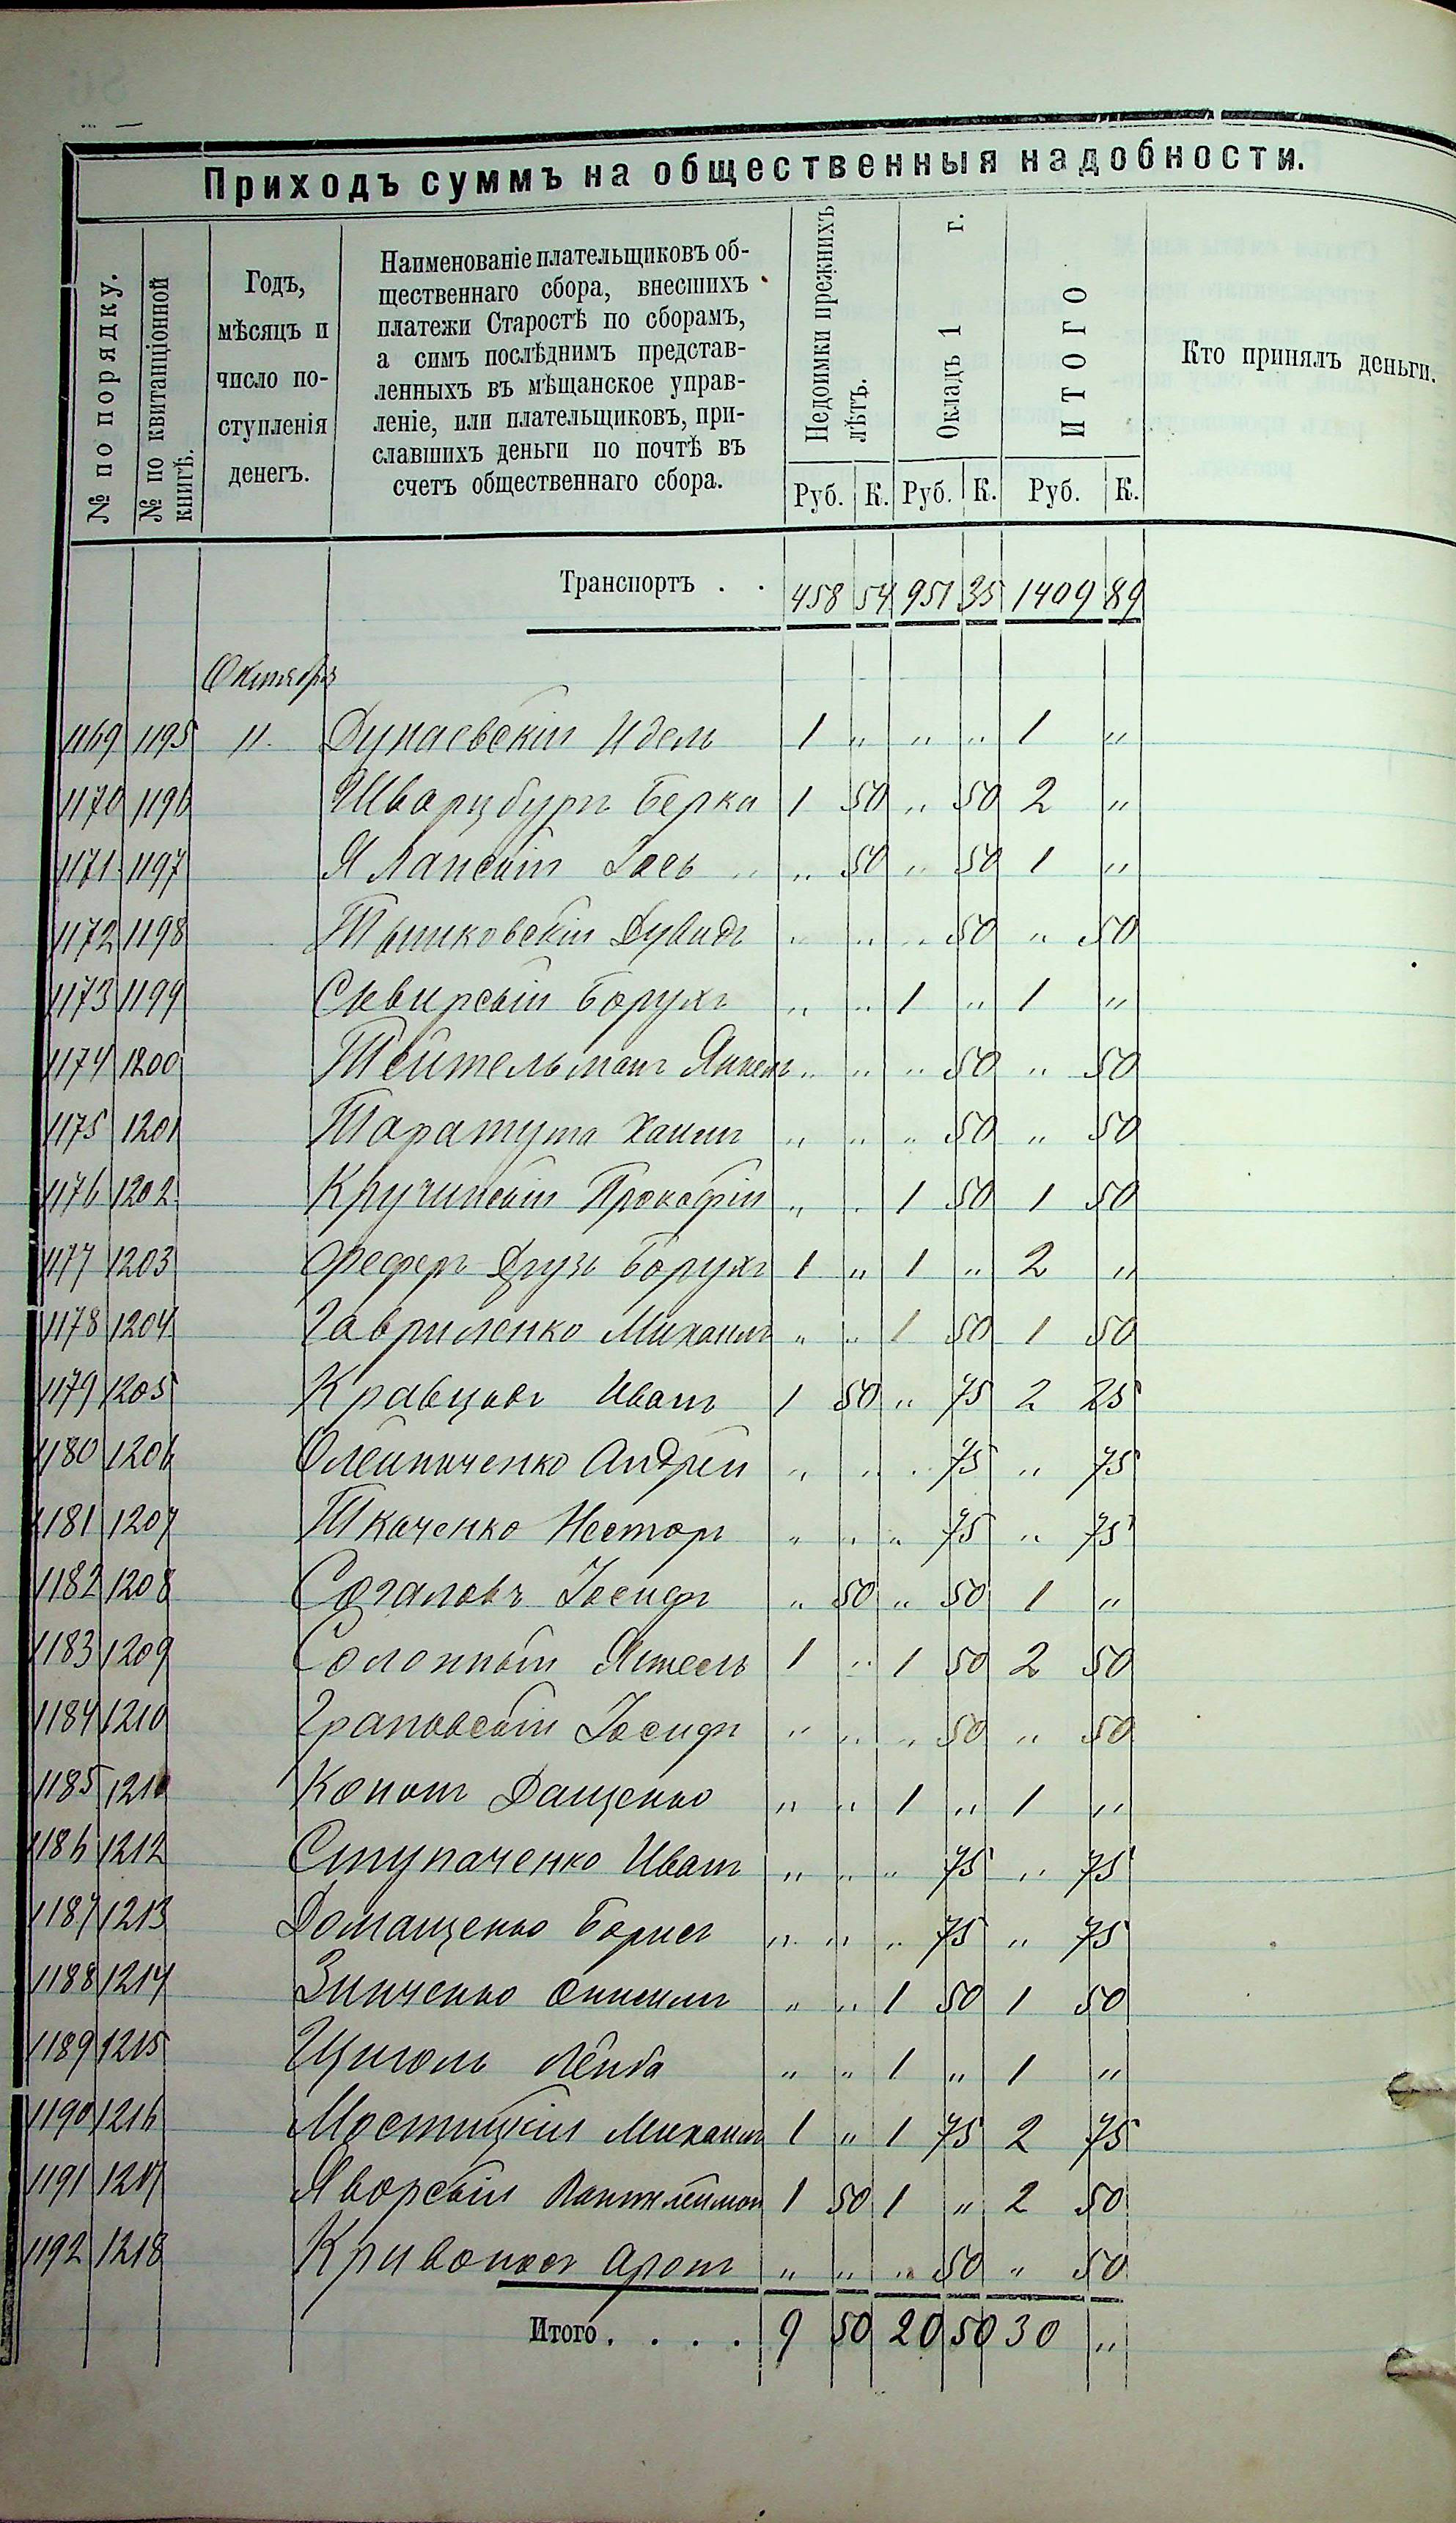 Приходъ суммъ на общественныя надобности.
№ по порядку.
№ по квитанціонной книгѣ.
Годъ, мѣсяцъ и число поступленія денегъ.
Наименованіе плательщиковъ об-
щественнаго сбора, внесшихъ
платежи Старостѣ по сборамъ,
а симъ послѣднимъ представ-
ленныхъ въ мѣщанское управ-
леніе, или плательщиковъ, при-
славшихъ деньги по почтѣ въ
счетъ общественнаго сбора.
Недоимки прежнихъ лѣтъ.
Окладъ 1 г.
ИТОГО
Кто принялъ деньги.
Руб. К. Руб. К. Руб. К.
Транспортъ . . 458 54 951 35 1409 89
Октября
1169 1195 11. Дунаевскій Идель 1 " " " 1 "
1170 1196 Шварцбургъ Берка 1 50 " 50 2 "
1171 1197 Яланскій Іось " 50 " 50 1 "
1172 1198 Тышковскій Дувидъ " " " 50 " 50
1173 1199 Сквирскій Борухъ " " 1 " 1 "
1174 1200 Тейтельманъ Янкель " " " 50 " 50
1175 1201 Таратута Хаимъ " " " 50 " 50
1176 1202 Кручинскій Прокофій " " 1 50 1 50
1177 1203 Феферъ Друзь Борухъ 1 " 1 " 2 "
1178 1204 Гавриленко Михаилъ " " 1 50 1 50
1179 1205 Кравцовъ Иванъ 1 50 " 75 2 25
1180 1206 Олейниченко Андрей " " " 75 " 75
1181 1207 Ткаченко Несторъ " " " 75 " 75
1182 1208 Согаловъ Іосифъ " 50 " 50 1 "
1183 1209 Солонный 1 " 1 50 2 50
1184 1210 Грановскій Іосифъ " " " 50 " 50
1185 1210 Кононъ Дащенко " " 1 " 1 "
1186 1212 Ступаченко Иванъ " " " 75 " 75
1187 1213 Домащенко Борисъ " " " 75 " 75
1188 1214 Зинченко " " 1 50 1 50
1189 1215 Щиголь Лейба " " 1 " 1 "
1190 1216 Мостицкій Михаилъ 1 " 1 75 2 75
1191 1217 Яворскій Пантелеймон 1 50 1 " 2 50
1192 1218 Кривоносъ Аронъ " " " 50 " 50
Итого. . . . 9 50 20 50 30 "